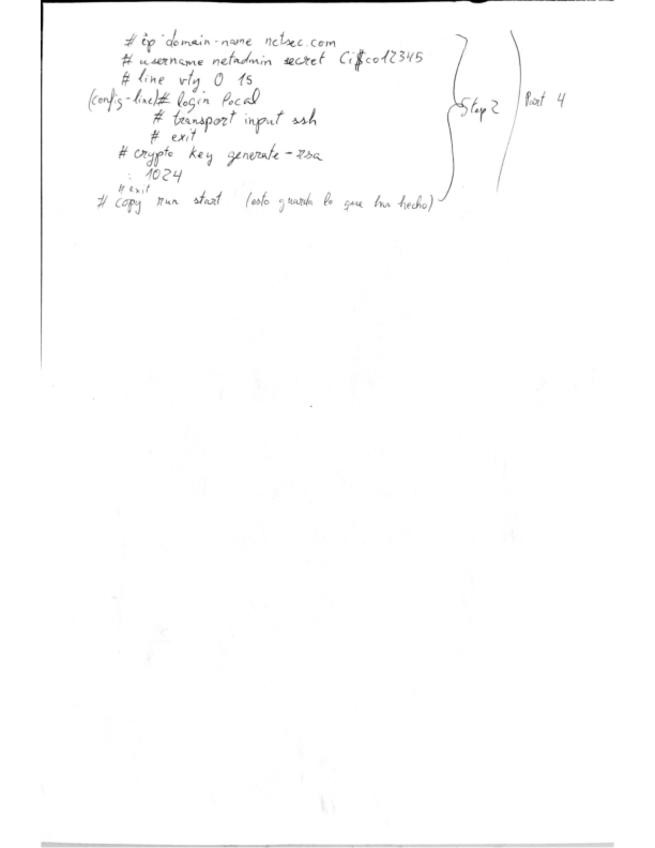 # ip domain-name netsec.com
# username netadmin secret Ci$co12345
# line vty 0 15
(config-line)# login local
# transport input ssh
# exit
# crypto key generate-rsa
: 1024
# exit
# copy run start (esto guarda lo que has hecho)
Step 2
Part 4